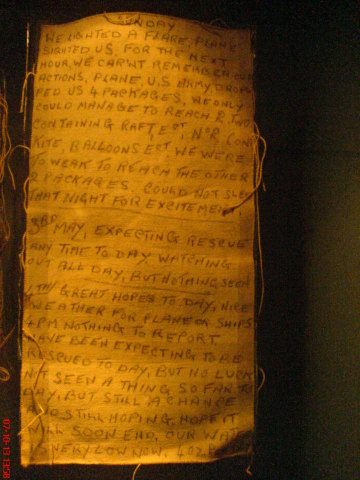 SUNDAY
WE LIGHTED A FLARE, PLANE
SIGHTED US. FOR THE NEXT
HOUR, WE CAR'NT REMEMBER OUR
ACTIONS, PLANE, U.S ARMY, DROP-
PED US 4 PACKAGES, WE ONLY
COULD MANAGE TO REACH 2, TWO
CONTAINING RAFT
KITE, BALLOONS ECT WE WERE
TO WEAK TO REACH THE OTHER
2 PACKAGES. COULD NOT SLEE
THAT NIGHT FOR EXCITEMENT,
3RD MAY, EXPECTING RESCUE
ANY TIME TO DAY, WATCHING
OUT ALL DAY, BUT NOTHING SEEN
4TH GREAT HOPES TO DAY, NICE
WEATHER FOR PLANE OR SHIPS
4 PM NOTHING TO REPORT
HAVE BEEN EXPECTING TO BE
RESCUED TO DAY, BUT NO LUCK
NOT SEEN A THING SO FAR TO
DAY, BUT STILL A CHANCE
AND STILL HOPING, HOPE IT
WILL SOON END, OUR WAT
VERY LOW NOW, 4OZ.
07-10-13 13:50